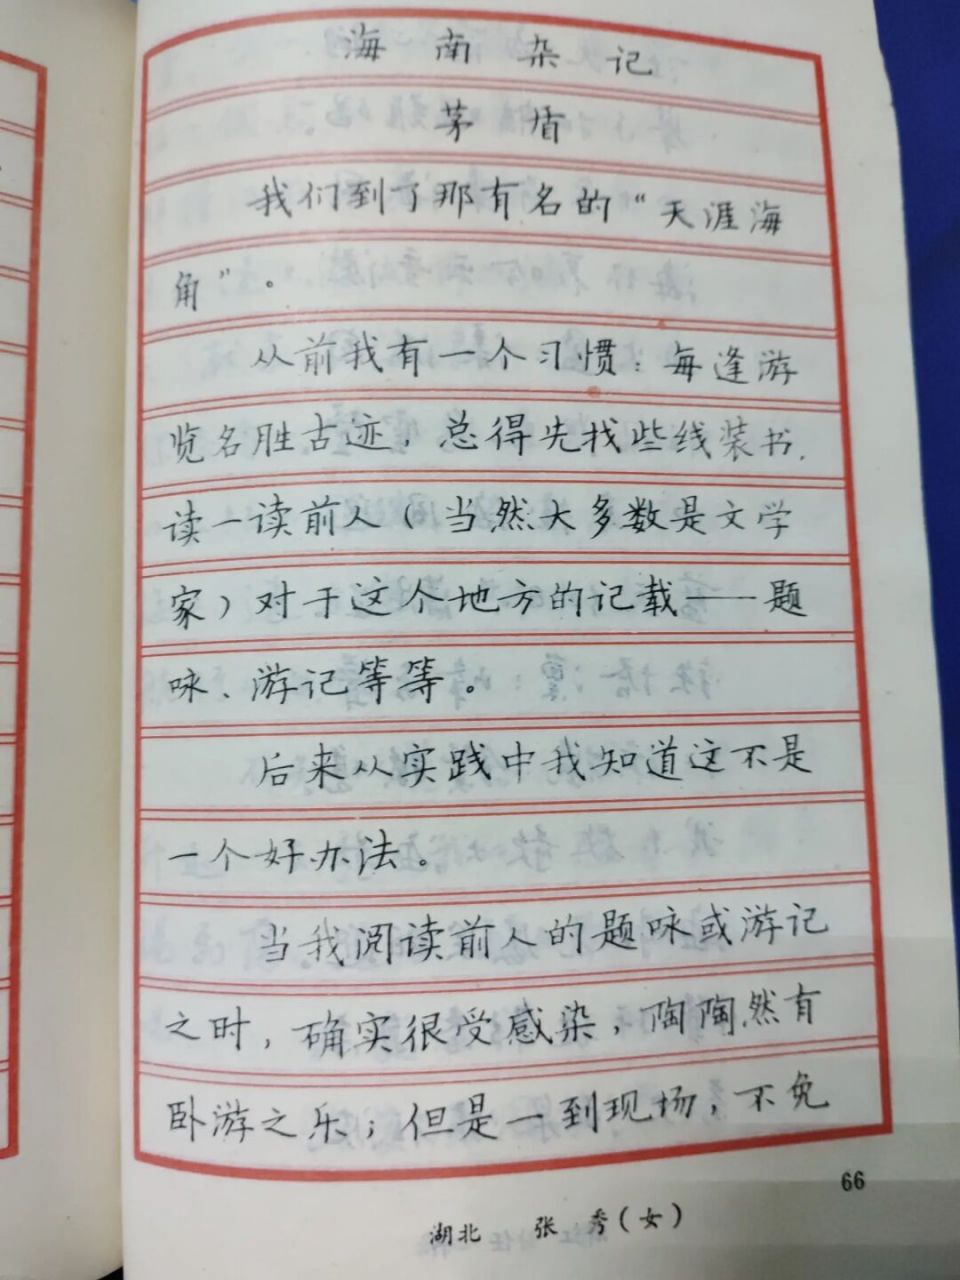 海南杂记
茅盾
我们到了那有名的“天涯海
角”。
从前我有一个习惯：每逢游
览名胜古迹，总得先找些线装书，
读一读前人（当然大多数是文学
家）对于这个地方的记载——题
咏、游记等等。
后来从实践中我知道这不是
一个好办法。
当我阅读前人的题咏或游记
之时，确实很受感染，陶陶然有
卧游之乐；但是一到现场，不免
66
湖北 张秀（女）